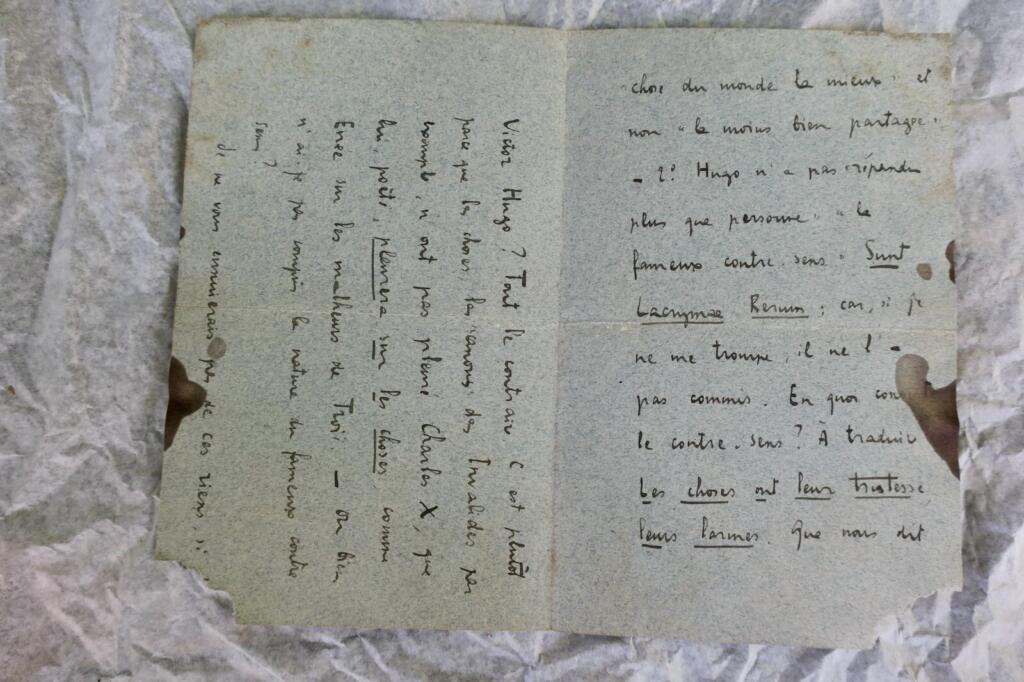 chose du monde la mieux" et
non "le moins bien partagée".
- 2° Hugo n'a pas "répandu
plus que personne" "le
fameux contre-sens" Sunt
Lacrymae Rerum ; car, si je
ne me trompe, il ne l'a
pas commis. En quoi con
le contre-sens ? À traduire
Les choses ont leur tristesse,
leurs larmes. Que nous dit
Victor Hugo ? Tout le contraire. C'est plutôt
parce que les choses, les "canons" des Invalides par
exemple, n'ont pas pleuré Charles X, que
lui, poète, pleurera sur les choses, comme
Enée sur les malheurs de Troie. — ou bien
n'ai-je pas compris la nature du fameux contre
sens ?
Je ne vous ennuierais pas de ces riens, si